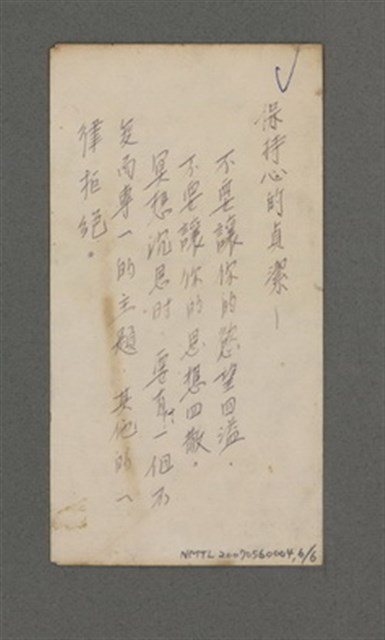 保持心的貞潔—
不要讓你的慾望四溢.
不要讓你的思想四散。
冥想沉思时.要有一個不
変而專一的主題.其他的一
律拒絕。
NMTL 20070560004, 6/6